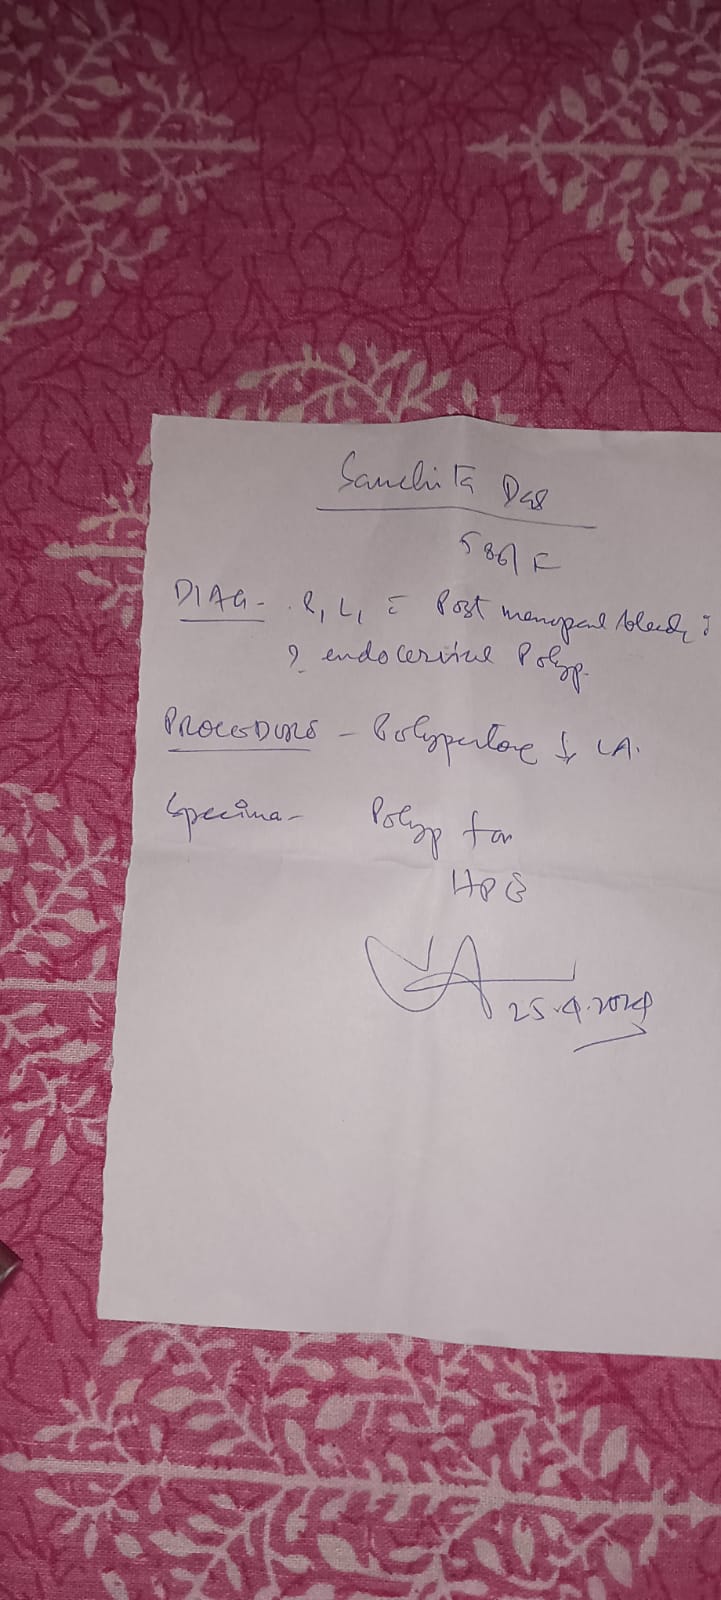 Sanchita Das
58y/F
DIAG - P1 L1 c̄ Post menopausal bleeding c̄
? endocervical Polyp.
PROCEDURE - Polypectomy LA.
Specimen - Polyp for
HPE
25.4.2024